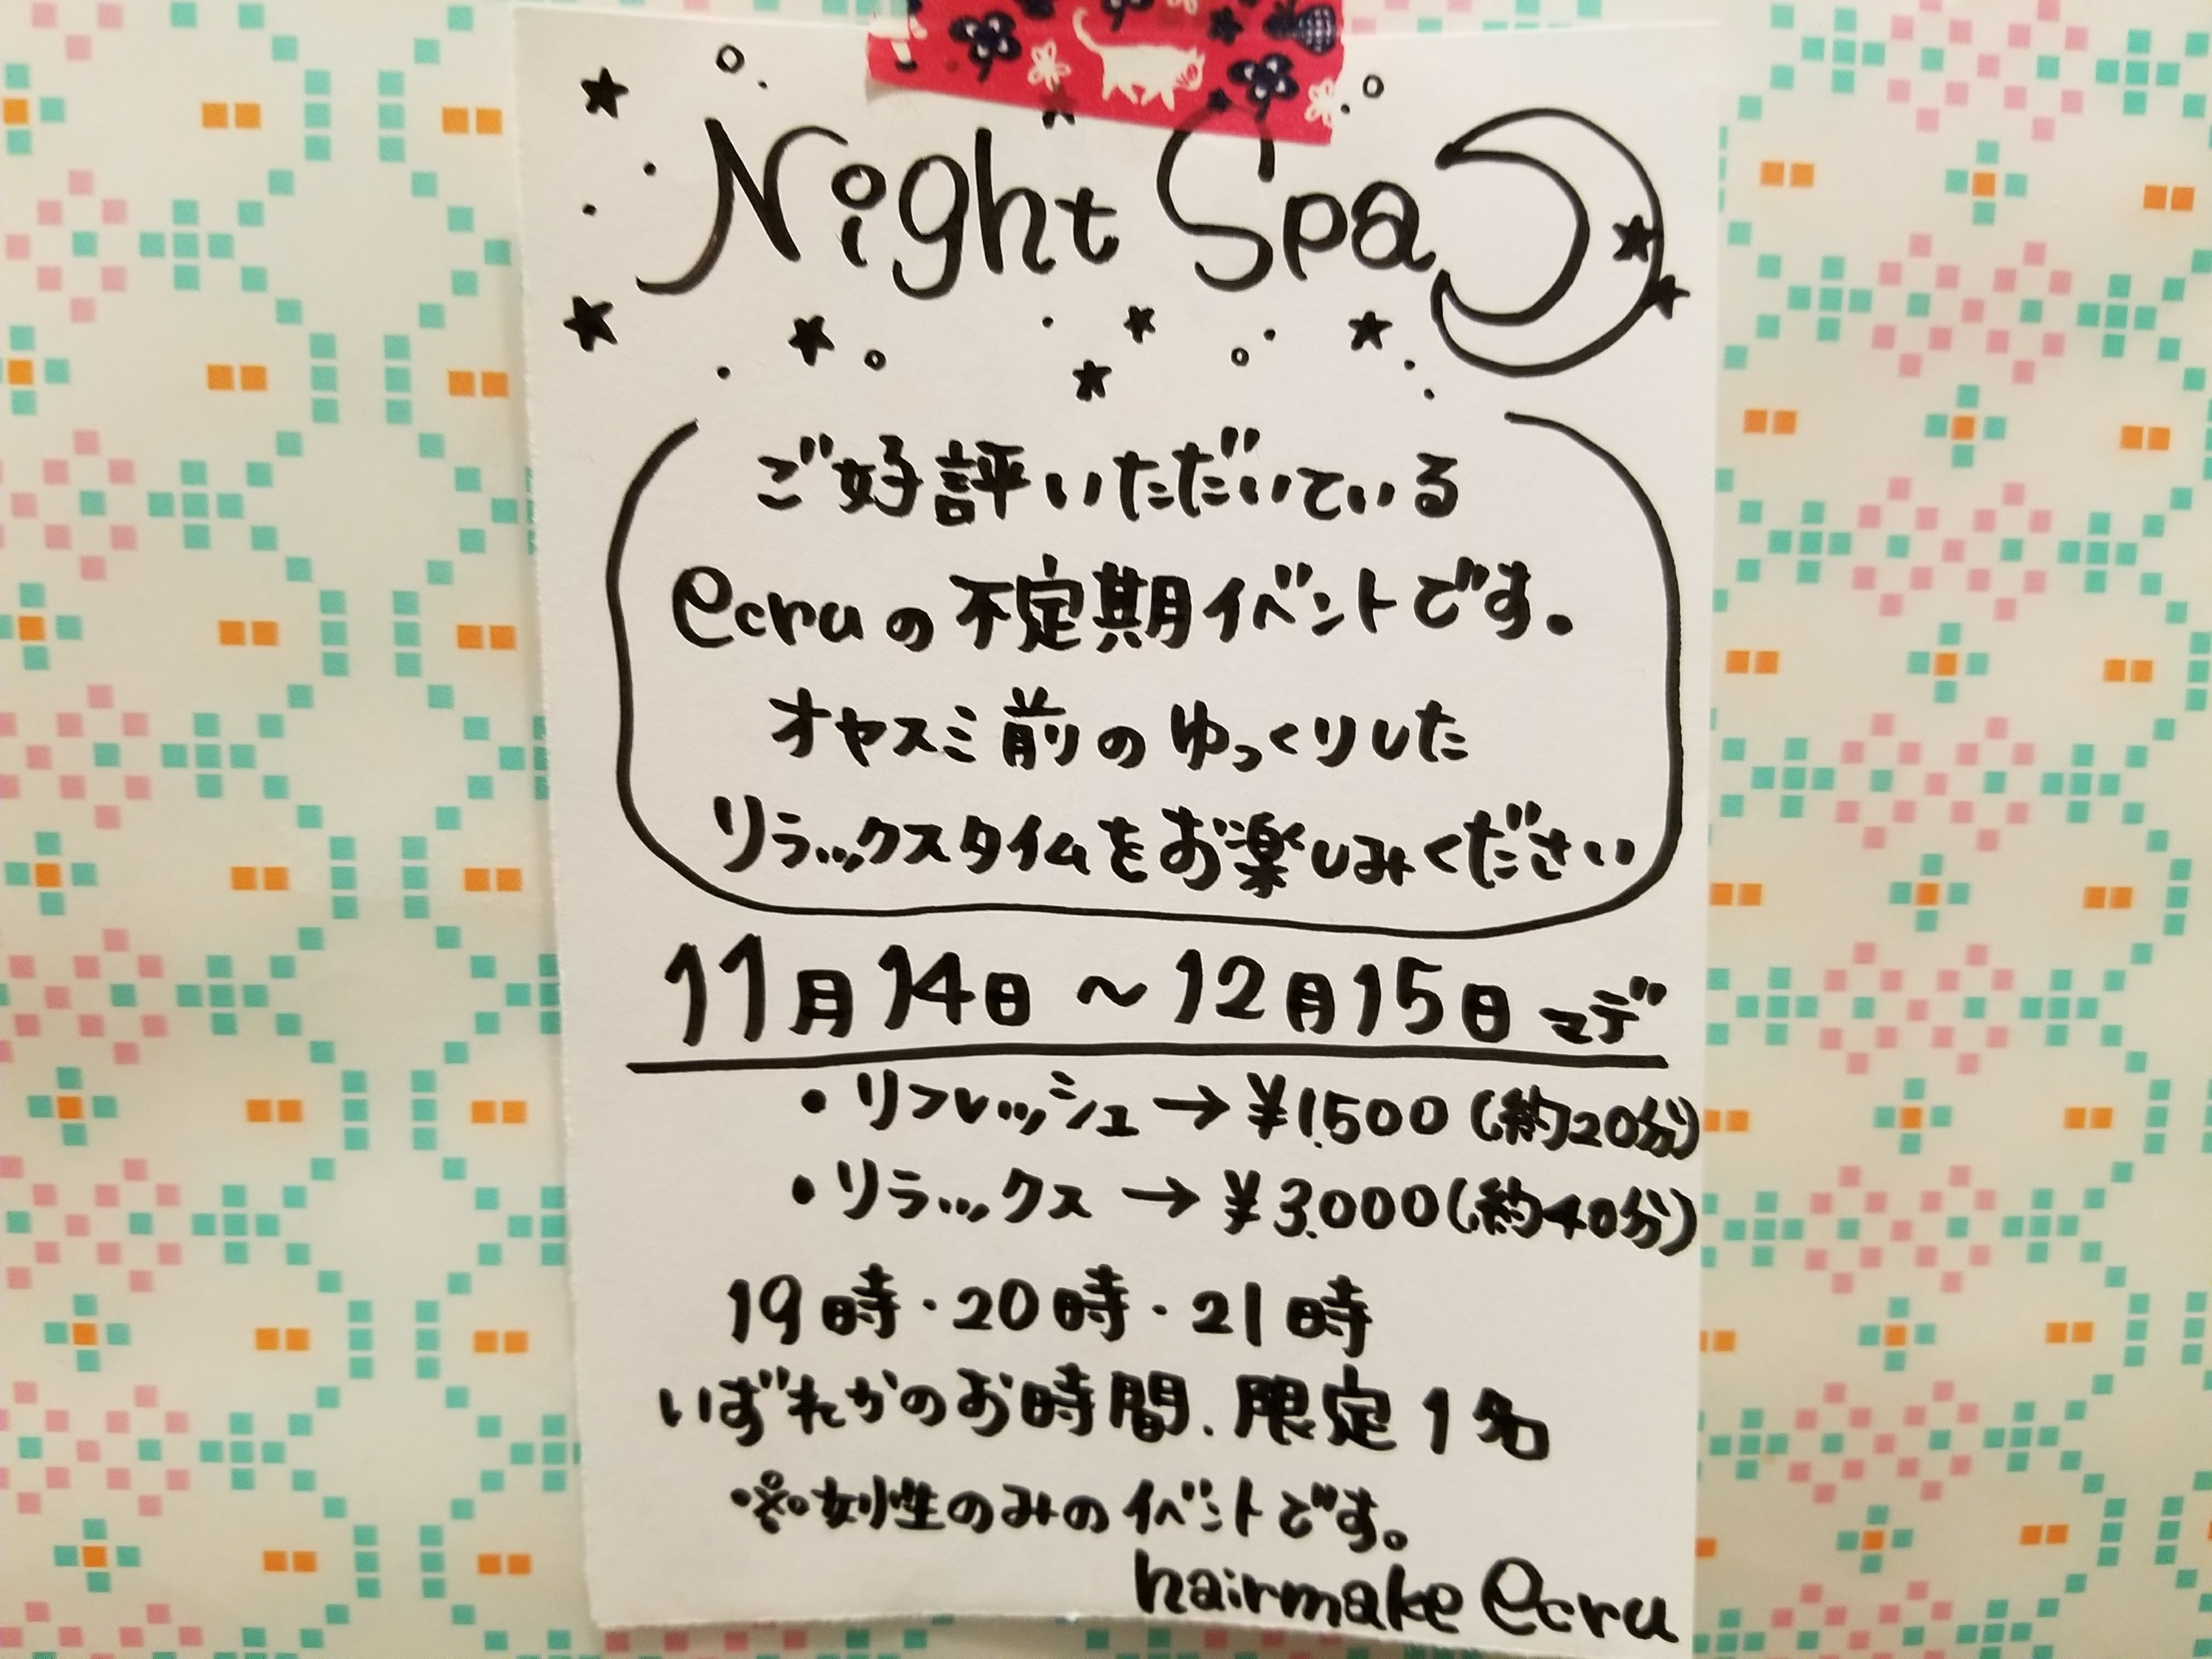 Night Spa
ご好評いただいている
ecruの不定期イベントです.
オヤスミ前のゆっくりした
リラックスタイムをお楽しみください
11月14日～12月15日マデ
・リフレッシュ→¥1.500(約20分)
・リラックス→¥3.000(約40分)
19時・20時・21時
いずれかのお時間.限定1名
※女性のみのイベントです。
hairmake ecru